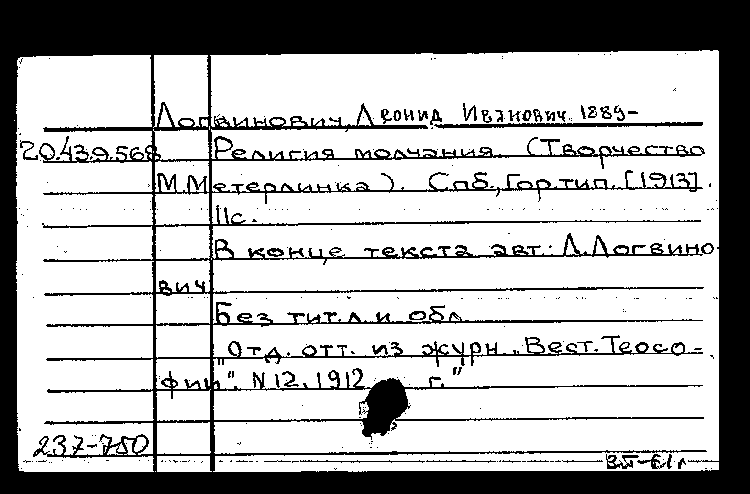 Логвинович, Леонид Иванович. 1889-
20.439.568 Религия молчания. (Творчество
М.Метерлинка). Спб., Гор.тип. [1913].
11с.
В конце текста авт.: Л.Логвино-
вич
Без тит.л. и обл.
"Отд. отт. из журн. "Вест. Теосо-
фии". N12. 1912 г."
237-750